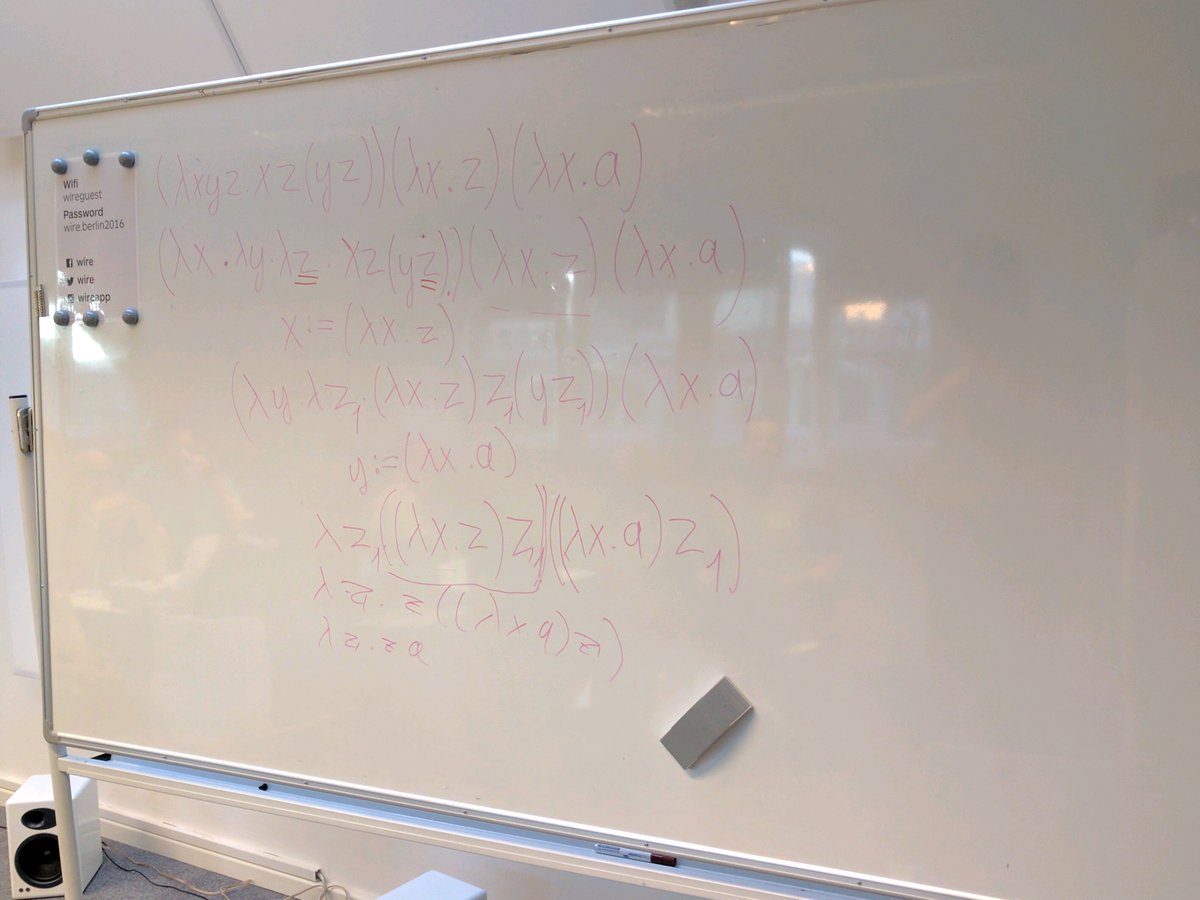 Wifi
wireguest
Password
wire.berlin2016
wire
wire
wireapp
(λxyz.xz(yz))(λx.z)(λx.a)
(λx.λy.λz.xz(yz))(λx.z)(λx.a)
x:=(λx.z)
(λy.λz₁.(λx.z)z₁(yz₁))(λx.a)
y:=(λx.a)
λz₁((λx.z)z₁)((λx.a)z₁)
λz₁.z((λx.a)z₁)
λz₁.za